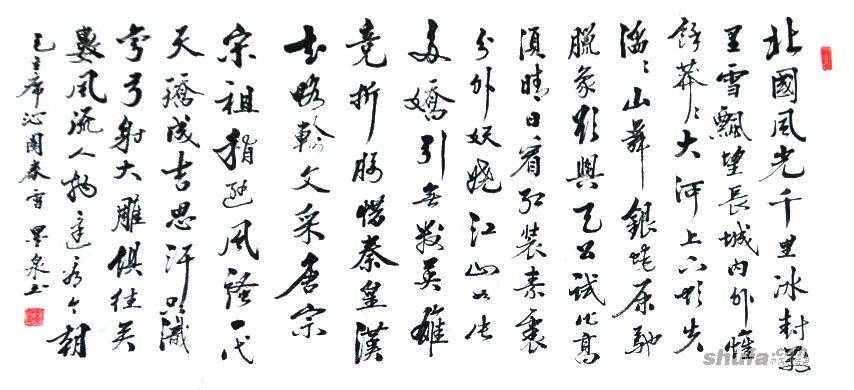 北國风光千里冰封萬
里雪飄望長城内外惟
餘莽〻大河上下頓失
滔〻山舞銀蛇原馳
臘象欲與天公試比高
須晴日看红装素裹
分外妖娆江山如此
多嬌引無數英雄
竞折腰惜秦皇漢
武略輸文采唐宗
宋祖稍遜风騷一代
天驕成吉思汗只識
弯弓射大雕俱往矣
數风流人物還看今朝
毛主席沁園春雪 墨泉书
shufa